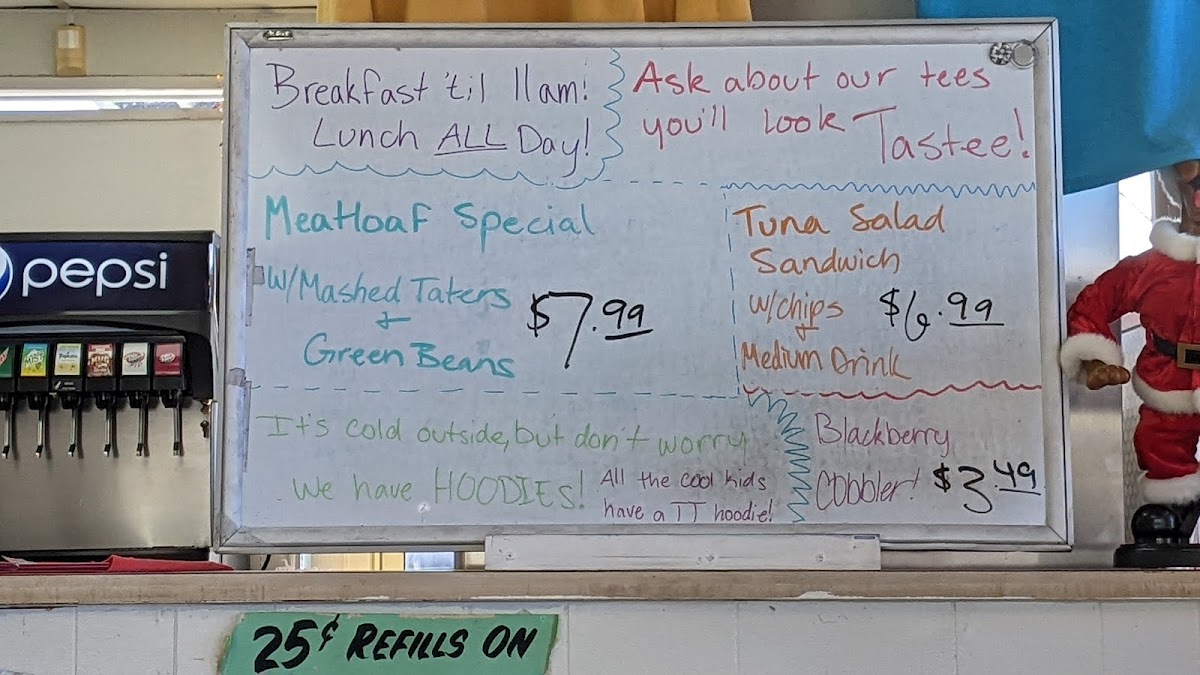 Breakfast 'til 11am!
Lunch ALL Day!
Ask about our tees
you'll look Tastee!
Meatloaf Special
W/Mashed Taters
+
Green Beans
$7.99
Tuna Salad
Sandwich
w/chips
+
Medium Drink
$6.99
It's cold outside, but don't worry
We have HOODIES!
All the cool kids
have a TT hoodie!
Blackberry
Cobbler! $3.49
pepsi
25¢ REFILLS ON